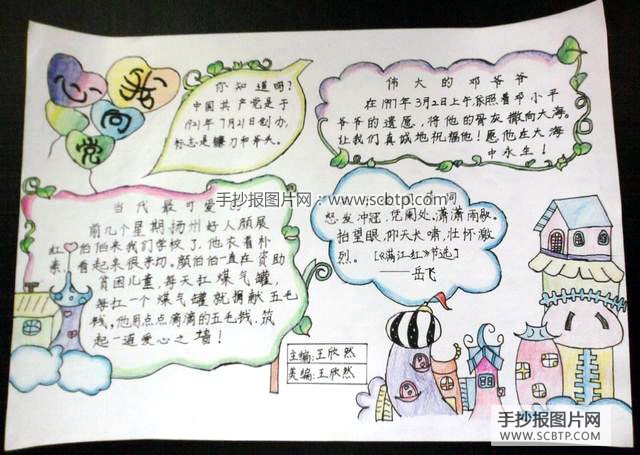 心向党
你知道吗?
中国共产党是于
1921年7月21日创办,
标志是镰刀和斧头。
伟大的邓爷爷
在1997年3月2日上午,依照着邓小平
爷爷的遗愿,将他的骨灰撒向大海。
让我们真诚地祝福他!愿他在大海
中永生!
手抄报图片网:www.scbtp.com
当代最可爱
前几个星期扬州好人颜展
红伯伯来我们学校了,他衣着朴
素看起来很亲切。颜伯伯一直在资助
贫困儿童,每天扛煤气罐,
每扛一个煤气罐就捐献五毛
钱,他用点点滴滴的五毛钱,筑
起一道爱心之墙!
词
怒发冲冠,凭阑处、潇潇雨歇。
抬望眼,仰天长啸,壮怀激
烈。[《满江红》节选]
——岳飞
主编:王欣然
美编:王欣然
手抄报图片网
WWW.SCBTP.COM